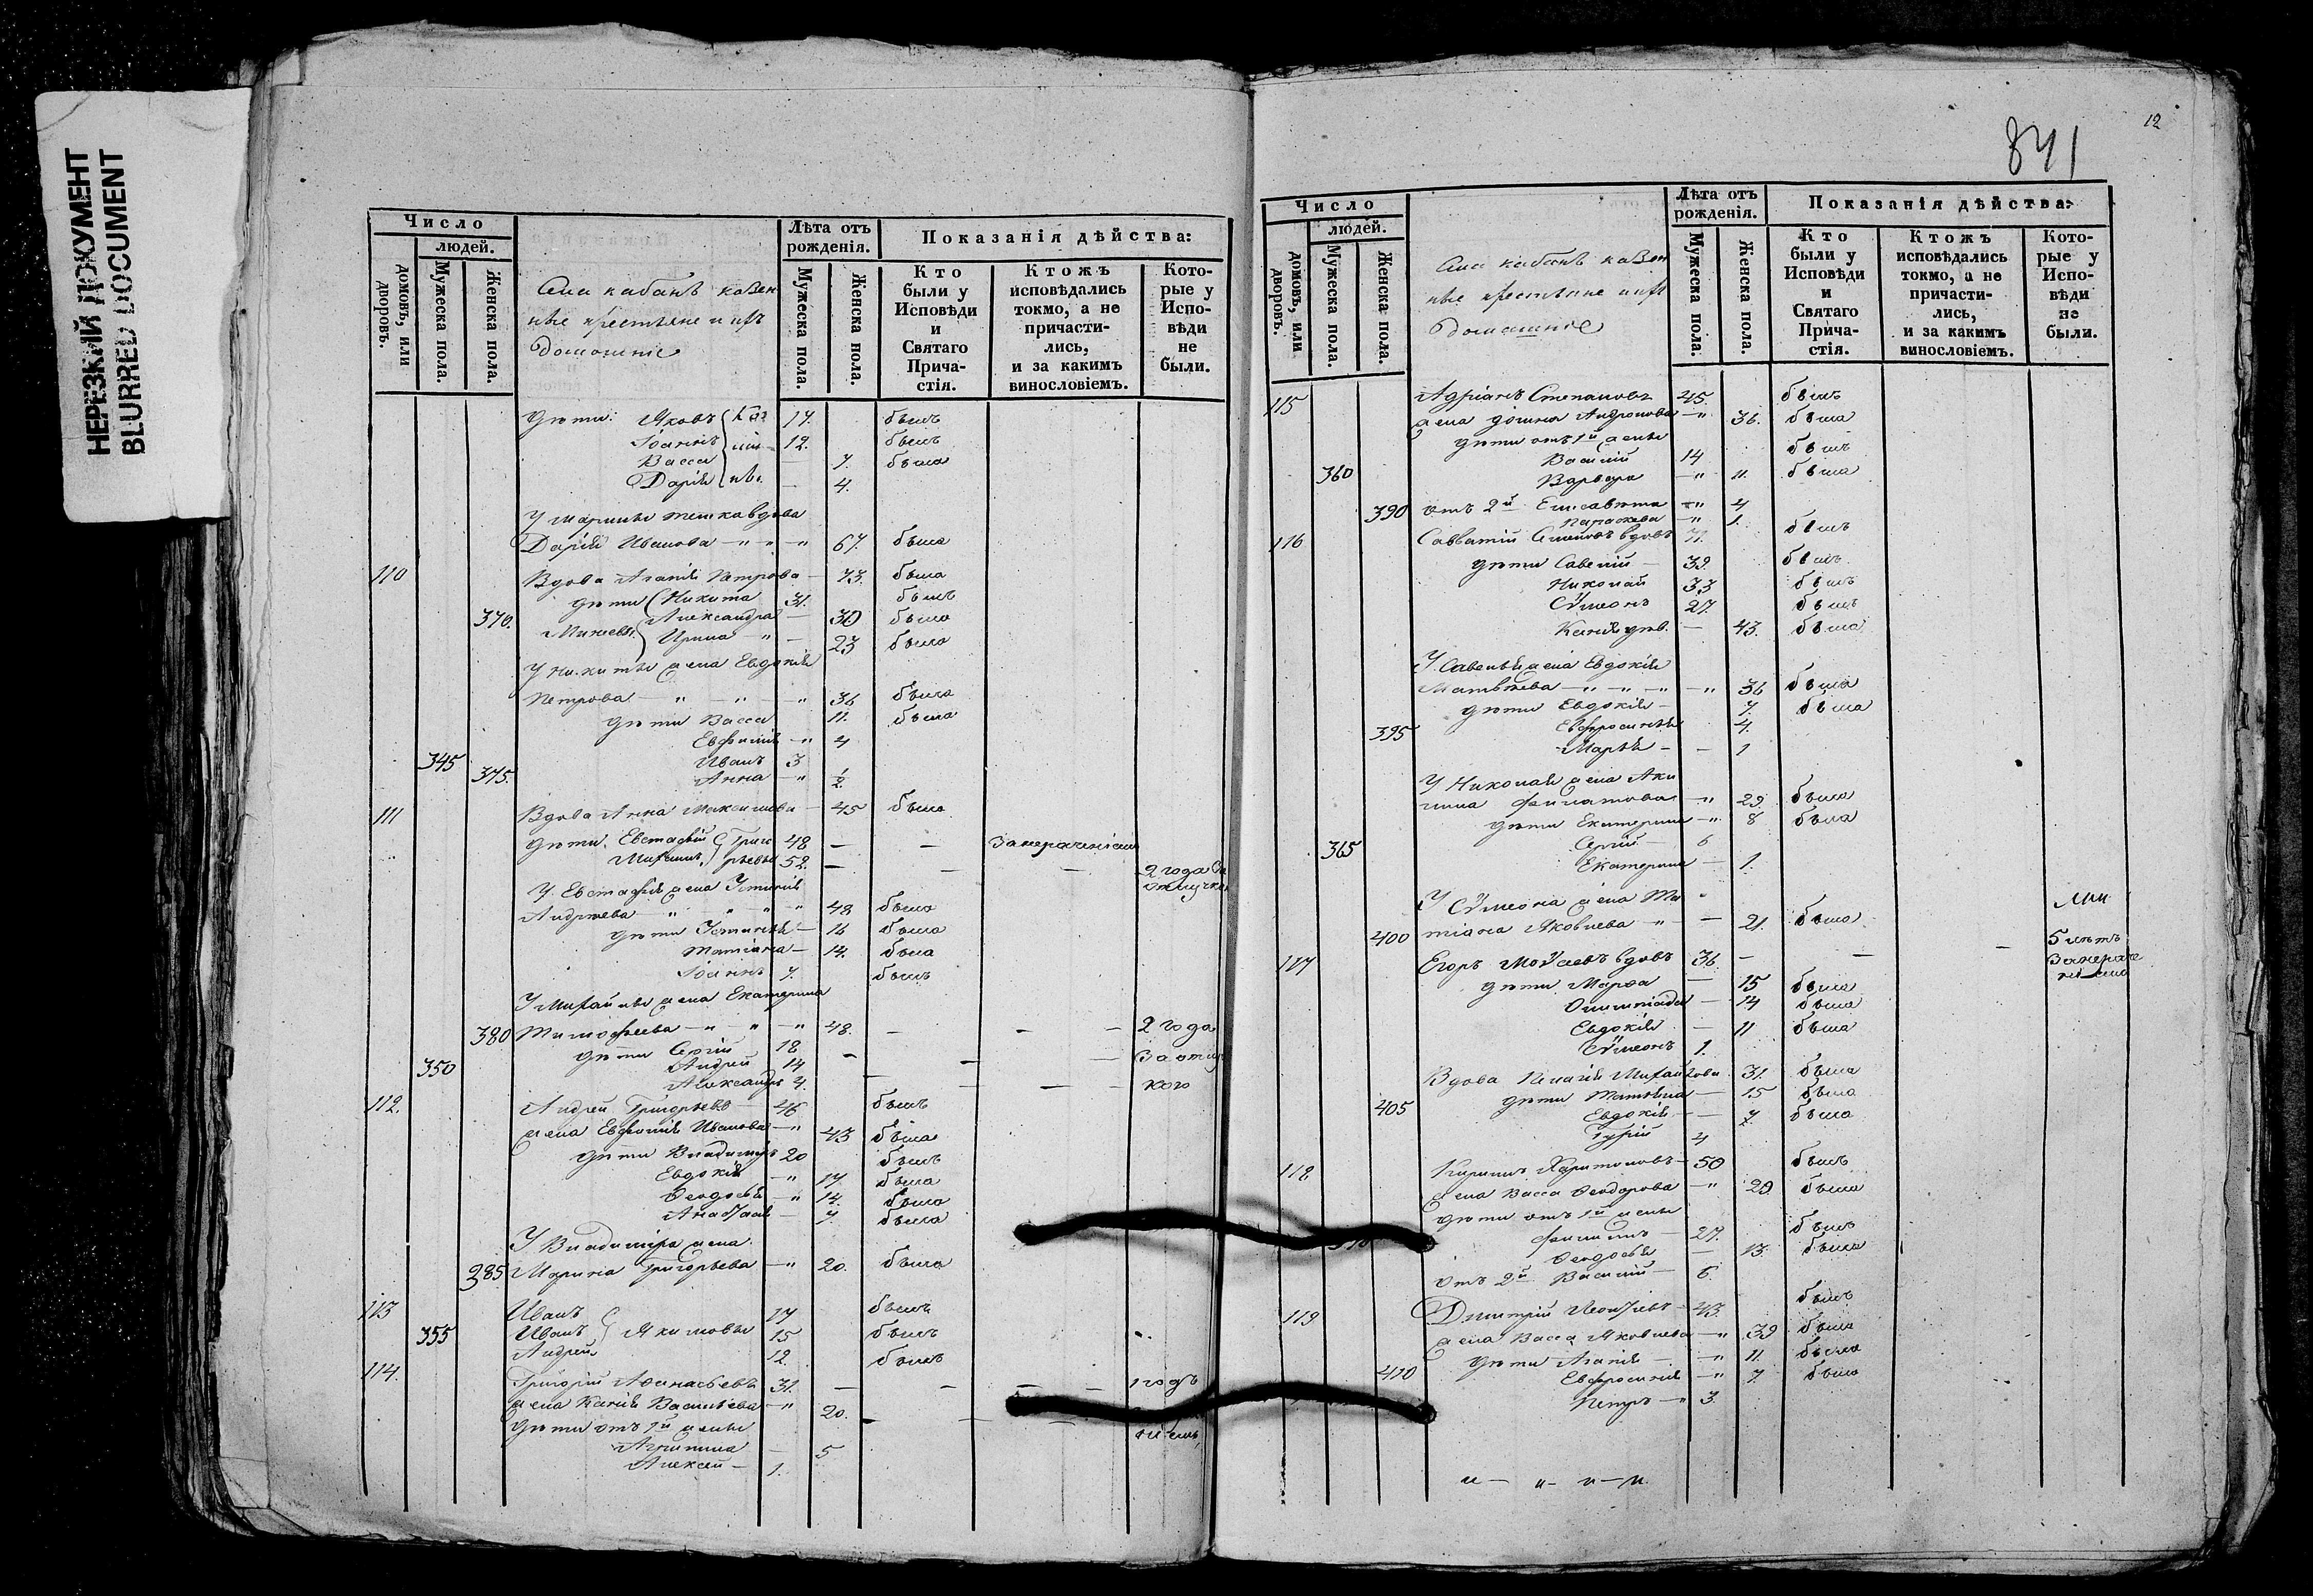 НЕРЕЗКИЙ ДОКУМЕНТ
BLURRED DOCUMENT
Число
людей.
домовъ, или дворовъ.
Мужеска пола.
Женска пола.
Села кабанъ казен
ные крестьяне и ихъ
домашніе
Лѣта отъ рожденія.
Мужеска пола.
Женска пола.
Показанія дѣйства:
Кто были у Исповѣди и Святаго Прича-стія.
Ктожъ исповѣдались токмо, а не причасти-лись, и за какимъ винословіемъ.
Кото-рые у Испо-вѣди не были.
дѣти: Яковъ 17. былъ
Іоаннъ 12. былъ
Васса — 7. была
Дарія — 4.
У Марины тетка вдова
Дарія Иванова — 67. была
110 Вдова Агапія Петрова — 73. была
дѣти Никита 31. былъ
370. Михеевы Александра — 30 была
Ирина — 23 была
У Никиты жена Евдокія
Петрова — 36 была
дѣти Васса 11. была
Евфимія — 4
345 Иванъ 3
375. Анна — 1/2
111 Вдова Анна Максимова — 45 была
дѣти Евстафій Григо 48 — — За нераченіемъ
Михаилъ рьевы 52. — — — 2 года въ
отлучкѣ
У Евстафія жена Устинія
Андреева — 48 была
дѣти Устинія — 16 была
Татіана — 14. была
Іоаннъ 7. былъ
У Михаилы жена Екатерина
380 Тимофеева — 48. — — — 2 года
дѣти Сергій 18 — — — За отлуч
350 Андрей 14
Александръ 4. — — — кою
112. Андрей Григорьевъ 46 былъ
жена Евфимія Иванова — 43 была
дѣти Владиміръ 20 былъ
Евдокія — 17 была
Феодосья — 14. была
Анастасія — 7. была
У Владиміра жена
385 Марина Григорьева — 20. была
113 Иванъ 17 былъ
355 Иванъ Якимовы 15 былъ
Андрей 12. былъ
114. Григорій Афанасьевъ 31. — — — 1 годъ
жена Ксенія Васильева — 20. — — —
дѣти отъ 1й жены
ніемъ
Агрипина — 5
Алексей — 1.
12
841
Число
людей.
домовъ, или дворовъ.
Мужеска пола.
Женска пола.
Села кабанъ казен
ные крестьяне и ихъ
домашніе
Лѣта отъ рожденія.
Мужеска пола.
Женска пола.
Показанія дѣйства:
Кто были у Исповѣди и Святаго Прича-стія.
Ктожъ исповѣдались токмо, а не причасти-лись, и за какимъ винословіемъ.
Кото-рые у Испо-вѣди не были.
115 Адріанъ Степановъ 45. былъ
жена Андронова — 36. была
дѣти отъ 1й жены
Василій 14 былъ
360 Варвара — 11. была
390 отъ 2й Елисавета — 4
Параскева — 1.
116 Савватій Семеновъ вдовъ 71. былъ
дѣти Савелій — 39. былъ
Николай 33 былъ
Сѵмеонъ 27. былъ
Ксенія дѣв. — 43. была
У Савелья жена Евдокія
Матвѣева — 36 была
дѣти Евдокія — 7. была
395 Евфросинья 4.
Марья — 1
У Николая жена Аки
лина Филатова — 29. была
дѣти Екатерина — 8 была
365 Сергій — 6
Екатерина — 1.
У Сѵмеона жена Та
400 тіана Яковлева — 21. была
117 Егоръ Моѵсеевъ вдовъ 36. — — — 5 лѣтъ
За нераче
ніемъ
дѣти Марѳа — 15 была
Олимпіада — 14 была
Евдокія — 11 была
Сѵмеонъ 1.
Вдова Пелагія Михайлова 31. была
405 дѣти Татьяна — 15 была
Евдокія — 7. была
Гурій 4
118 Кирилъ Харитоновъ — 50 былъ
жена Васса Феодорова — 29. была
дѣти отъ 1й жены
Филипъ — 27. былъ
Феодосья — 13. была
отъ 2й Василій — 6.
119 Димитрій Леонтіевъ — 43. былъ
жена Васса Яковлева — 39 была
дѣти Агапія — 11. была
410 Евфросинія — 7. была
Петръ — 3.